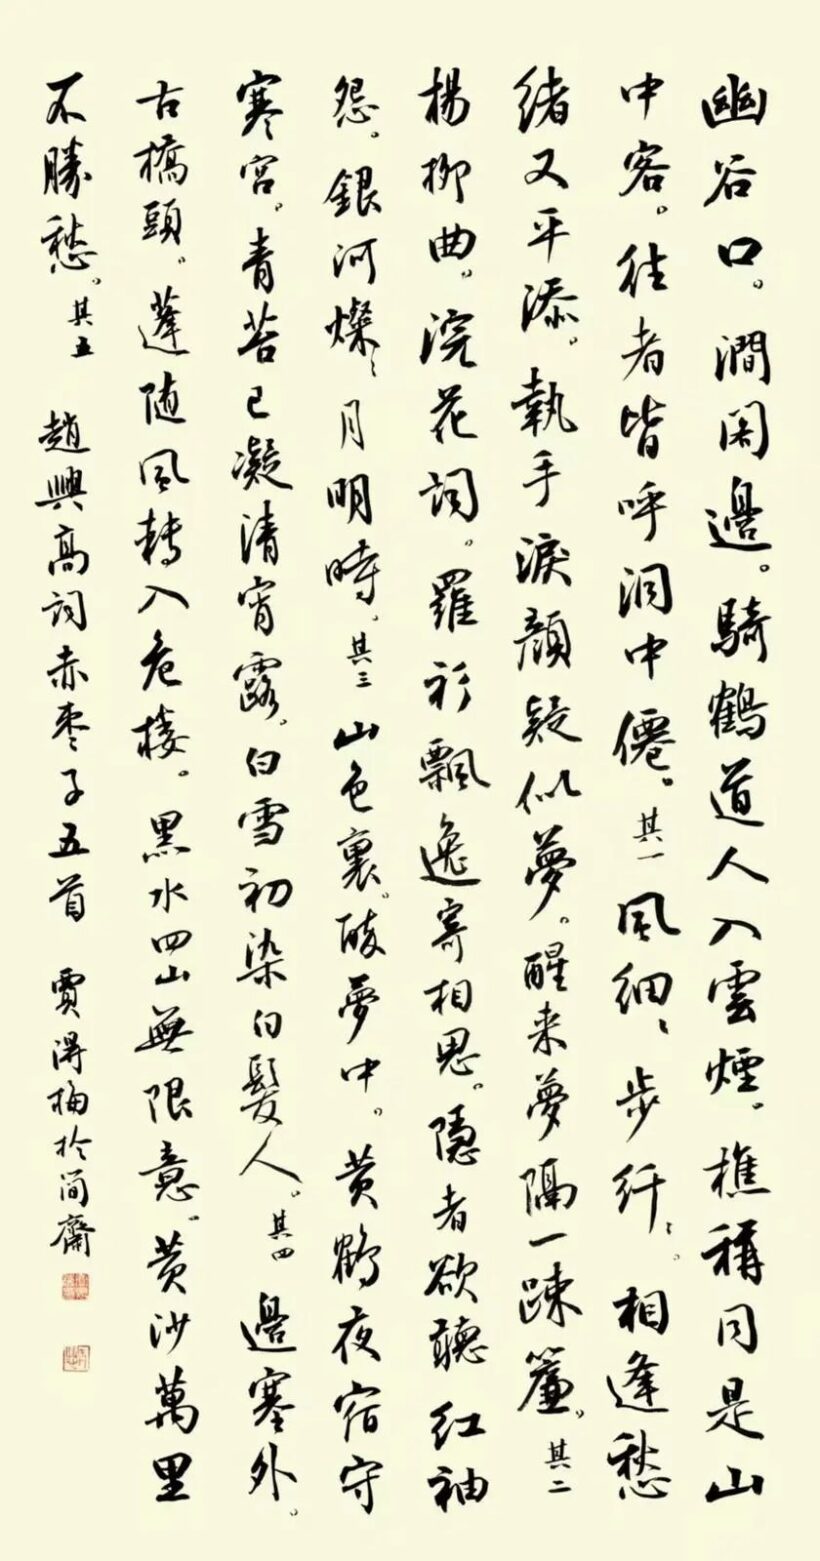 幽谷口。澗闲邊。騎鶴道人入雲煙。樵稱同是山
中客。往者皆呼洞中僊。其一 風細、步纤、。相逢愁
緒又平添。執手淚顔疑似夢。醒来夢隔一疎簾。其二
楊柳曲。浣花詞。羅衫飄逸寄相思。隐者欲聽红袖
怨。銀河燦、月明時。其三 山色裏。酸夢中。黄鶴夜宿守
寒宫。青苔已凝清宵露。白雪初染白髮人。其四 邊塞外。
古橋頭。蓬随風轉入危楼。黑水四山無限意。黄沙萬里
不勝愁。其五 趙興高詞赤枣子五首 賈得梅於简齋